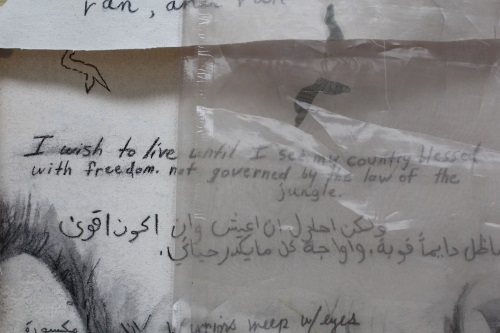 ran, after
I wish to live until I see my country blessed
with freedom. not governed by the law of the
jungle.
ولكن احاول ان اعيش وان اكون اقوى
ماظل دايماً قوية. واواجه كل مايكدر حياتي.
مكسورة
weep w/ eyes